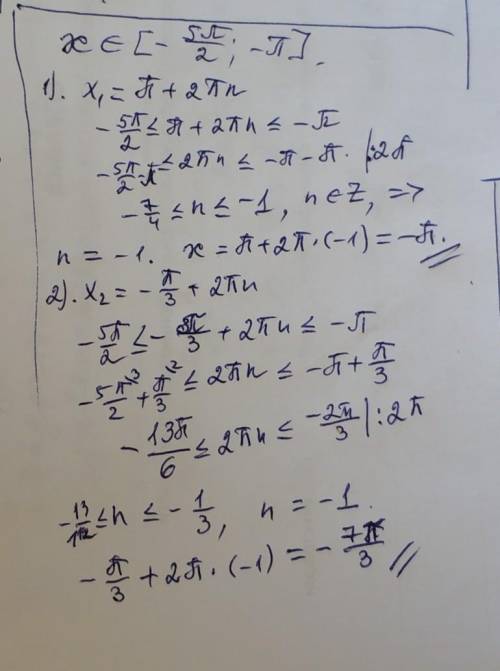 x ∈ [-5π/2; -π].
1). x₁ = π + 2πn
-5π/2 ≤ π + 2πn ≤ -π
-5π/2 - π ≤ 2πn ≤ -π - π. |:2π
-7/4 ≤ n ≤ -1, n ∈ Z, =>
n = -1. x = π + 2π·(-1) = -π.
2). x₂ = -π/3 + 2πn
-5π/2 ≤ -π/3 + 2πn ≤ -π
-5π/2 + π/3 ≤ 2πn ≤ -π + π/3
-13π/6 ≤ 2πn ≤ -2π/3 |:2π
-13/12 ≤ n ≤ -1/3, n = -1.
-π/3 + 2π·(-1) = -7π/3